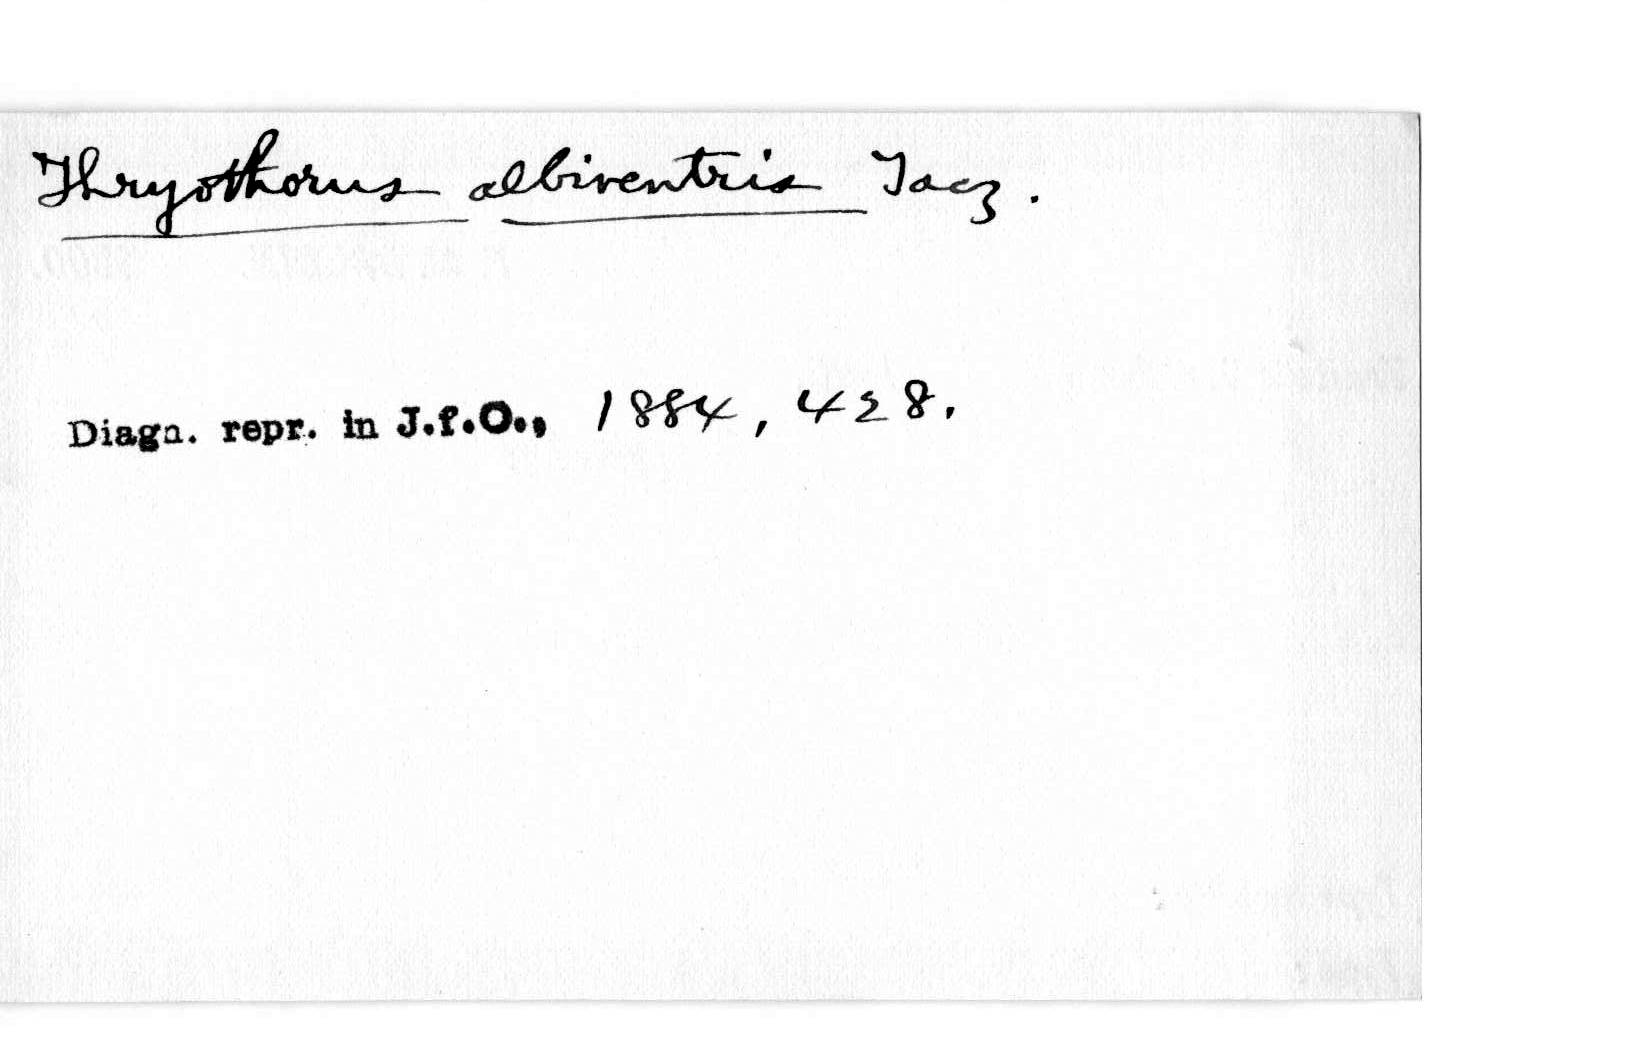 Thryothorus albiventris Tacz.
Diagn. repr. in J.f.O., 1884, 428.